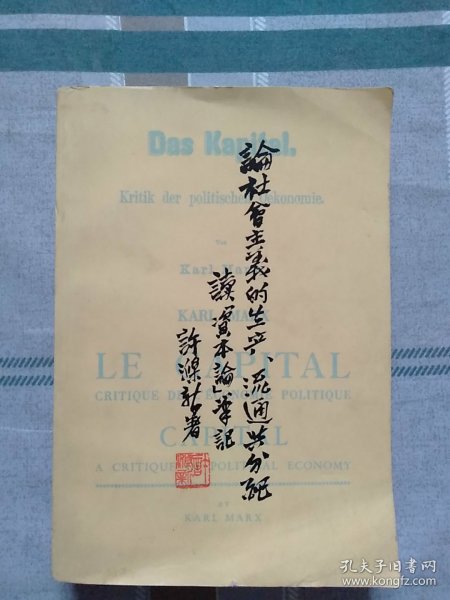 Das Kapital.
Kritik der politischen Oekonomie.
Von
Karl Marx
KARL MARX
LE CAPITAL
CRITIQUE DE L'ÉCONOMIE POLITIQUE
CAPITAL
A CRITIQUE OF POLITICAL ECONOMY
BY
KARL MARX
論社會主義的生产、流通與分配
讀“資本論”筆記
許滌新著
孔夫子旧书网
www.kongfz.com